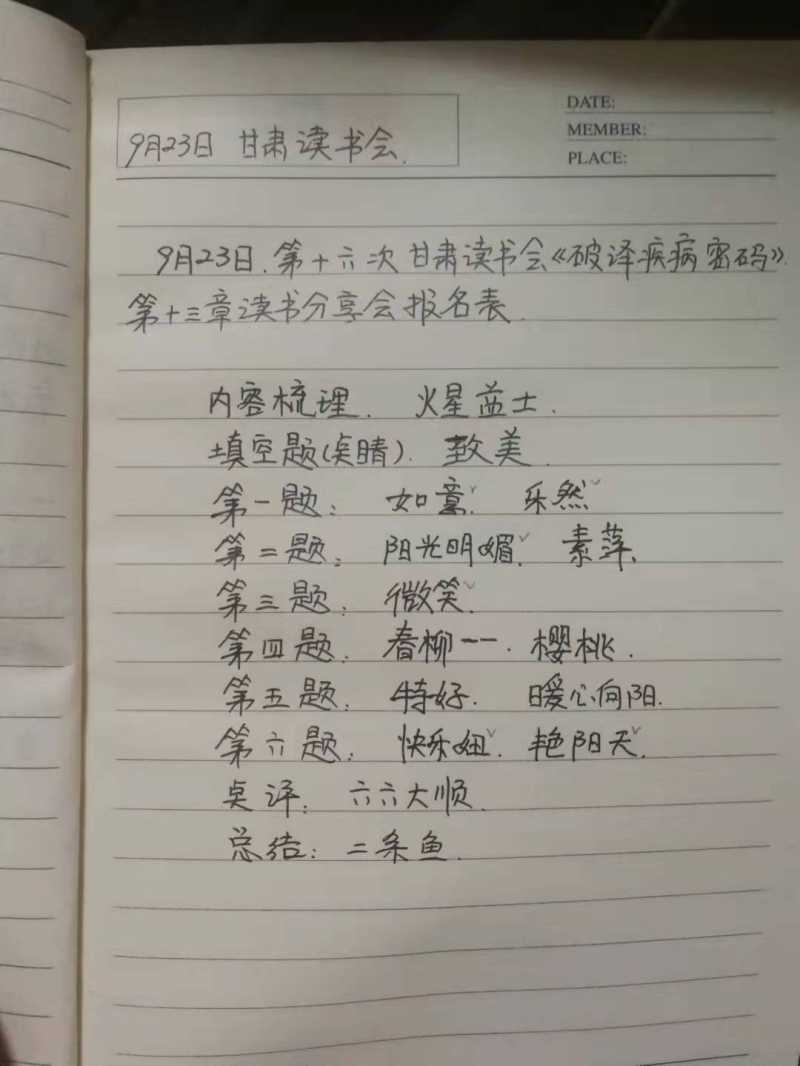 9月23日 甘肃读书会.
DATE:
MEMBER:
PLACE:
9月23日.第十六次甘肃读书会《破译疾病密码》.
第十三章读书分享会报名表.
内容梳理. 火星益士.
填空题(点睛). 致美.
第一题: 如意. 乐然
第二题: 阳光明媚. 素萍.
第三题: 微笑.
第四题: 春柳一一. 樱桃.
第五题: 特好. 暖心向阳.
第六题: 快乐妞. 艳阳天.
点评: 六六大顺.
总结: 二条鱼.